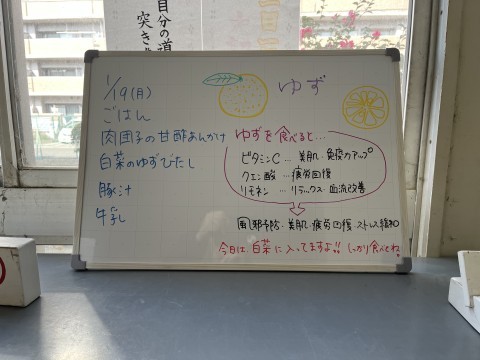 自分の道
突き
1/19(月)
ごはん
肉団子の甘酢あんかけ
白菜のゆずびたし
豚汁
牛乳
ゆず
ゆずを食べると…
ビタミンC … 美肌・免疫力アップ
クエン酸 … 疲労回復
リモネン … リラックス・血流改善
風邪予防・美肌・疲労回復・ストレス緩和
今日は、白菜に入ってますよ!! しっかり食べてね。